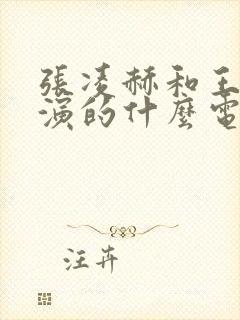 張凌赫和王
演的什麼電
汪卉